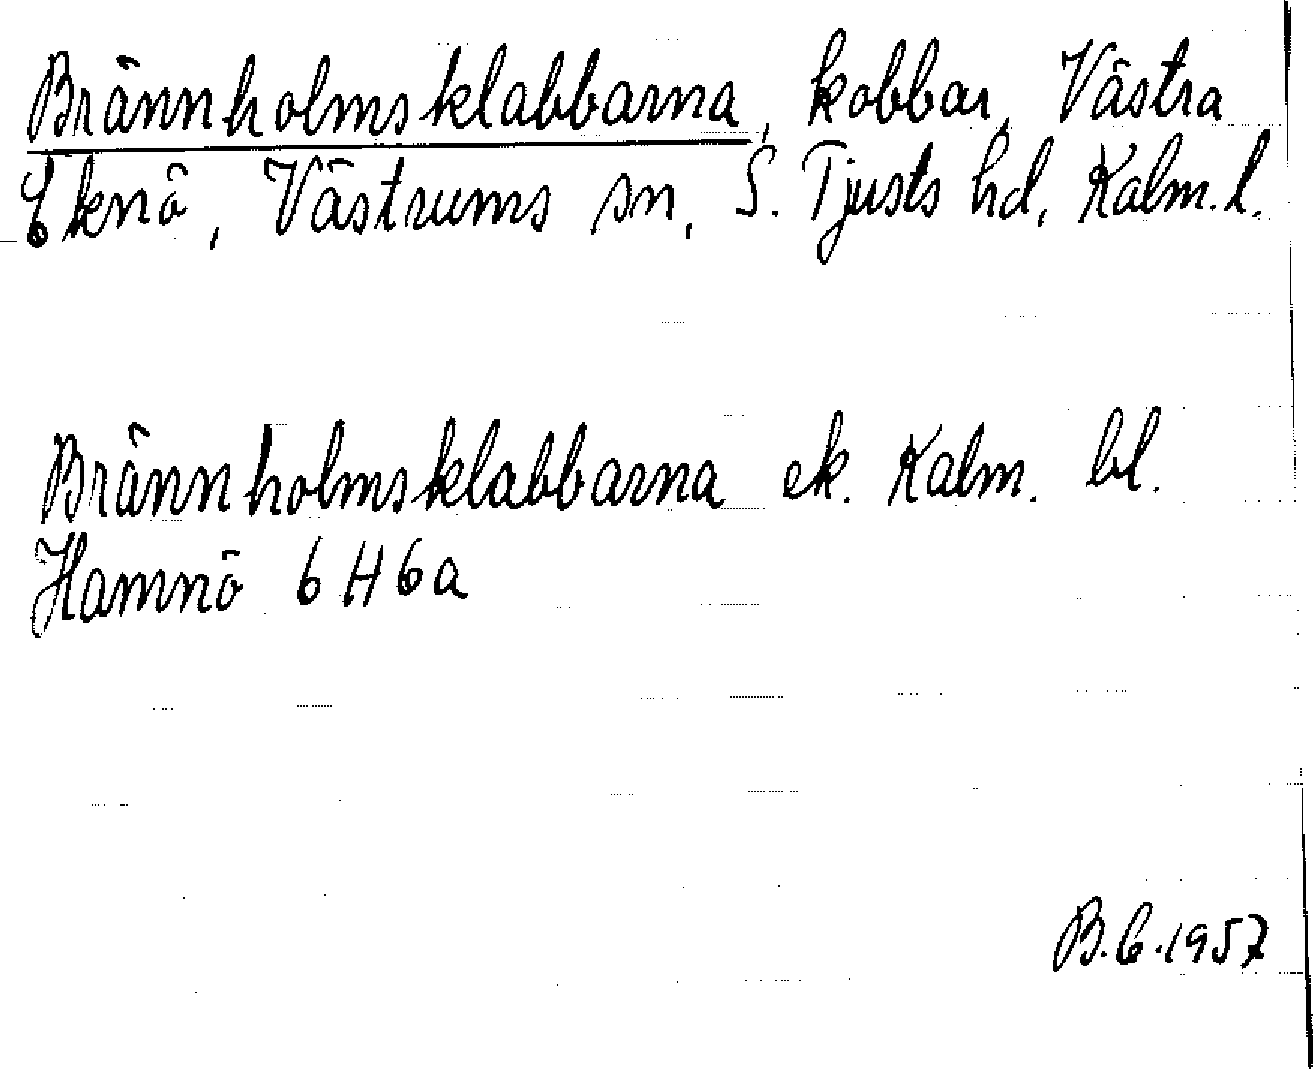 Brännholmsklabbarna, kobbar, Västra
Eknö, Västrums sn, S. Tjusts hd, Kalm. l.
Brännholmsklabbarna ek. Kalm. bl.
Hamnö 6 H 6a
B.E.1957